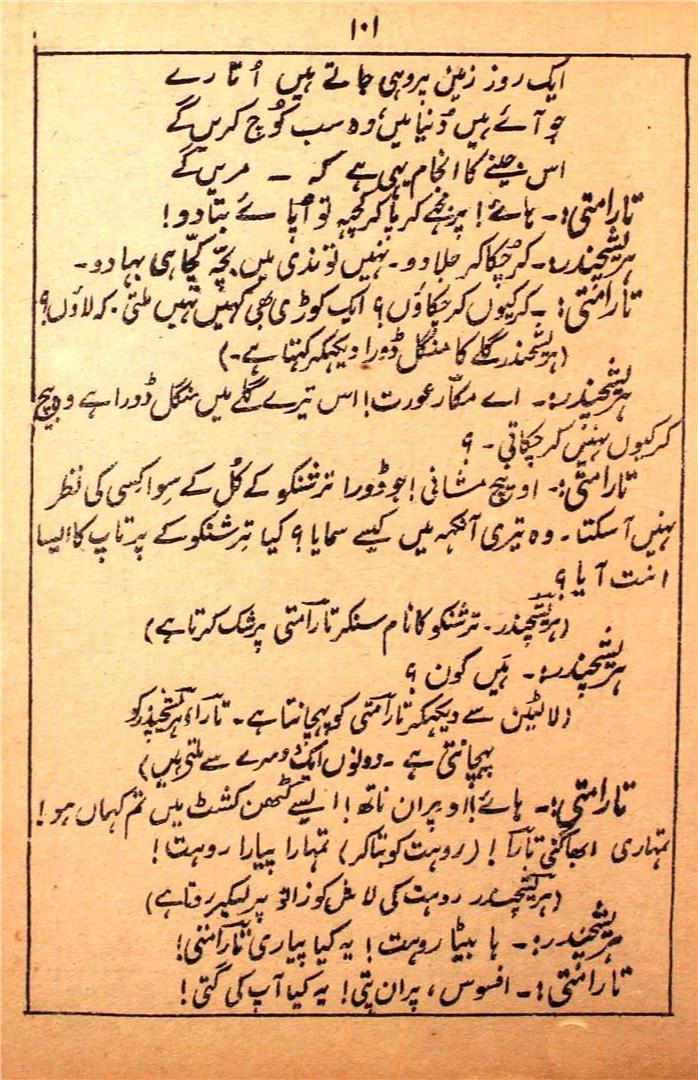 ۱۰۱
ایک روز زمین پر وہی جاتے ہیں اُتارے
جو آئے ہیں دُنیا میں، وہ سب کُوچ کریں گے
اس جینے کا انجام یہی ہے کہ ـ مریں گے
تارامتی:۔ ہائے! پر نہجے کریا کر کچھ تو اُپائے بتا دو!
ہریشچندر:۔ کر چُکا کر جلا دو۔ نہیں تو ندی میں بچّہ کچّا ہی بہا دو۔
تارامتی:۔ کر کیوں کر چکاؤں؟ ایک کوڑی بھی کہیں نہیں ملتی۔ کہ لاؤں؟
(ہریشچندر گلے کا منگل ڈورا دیکھکر کہتا ہے۔)
ہریشچندر:۔ اے مکّار عورت! اس تیرے گلے میں منگل ڈورا ہے وہ بیچ
کر کیوں نہیں کر چکاتی۔؟
تارامتی:۔ او نیچ مشانی! جو ڈورا ترشنکو کے کُل کے سِوا کسی کی نظر
نہیں آ سکتا۔ وہ تیری آنکھ میں کیسے سمایا؟ کیا تِرشنکو کے پرتاپ کا ایسا
انت آیا؟
(ہریشچندر۔ ترشنکو کا نام سنکر تارامتی پر شک کرتا ہے)
ہریشچندر:۔ ہَیں کون؟
(لالٹین سے دیکھکر تارامتی کو پہچانتا ہے۔ تارا، ہریشچندر کو
پہچانتی ہے۔ دونوں ایک دوسرے سے ملتی ہیں)
تارامتی:۔ ہائے! او پران ناتھ! ایسے کٹھن کشٹ میں تم کہاں ہو!
تمہاری ابھاگنی تارا! (روہت کو بتا کر) تمہارا پیارا روہت!
(ہریشچندر روہت کی لاش کو زانو پر لیکر روتا ہے)
ہریشچندر:۔ ہا بیٹا روہت! یہ کیا پیاری تارامتی!
تارامتی:۔ افسوس، پران پتی! یہ کیا آپ کی گتی!